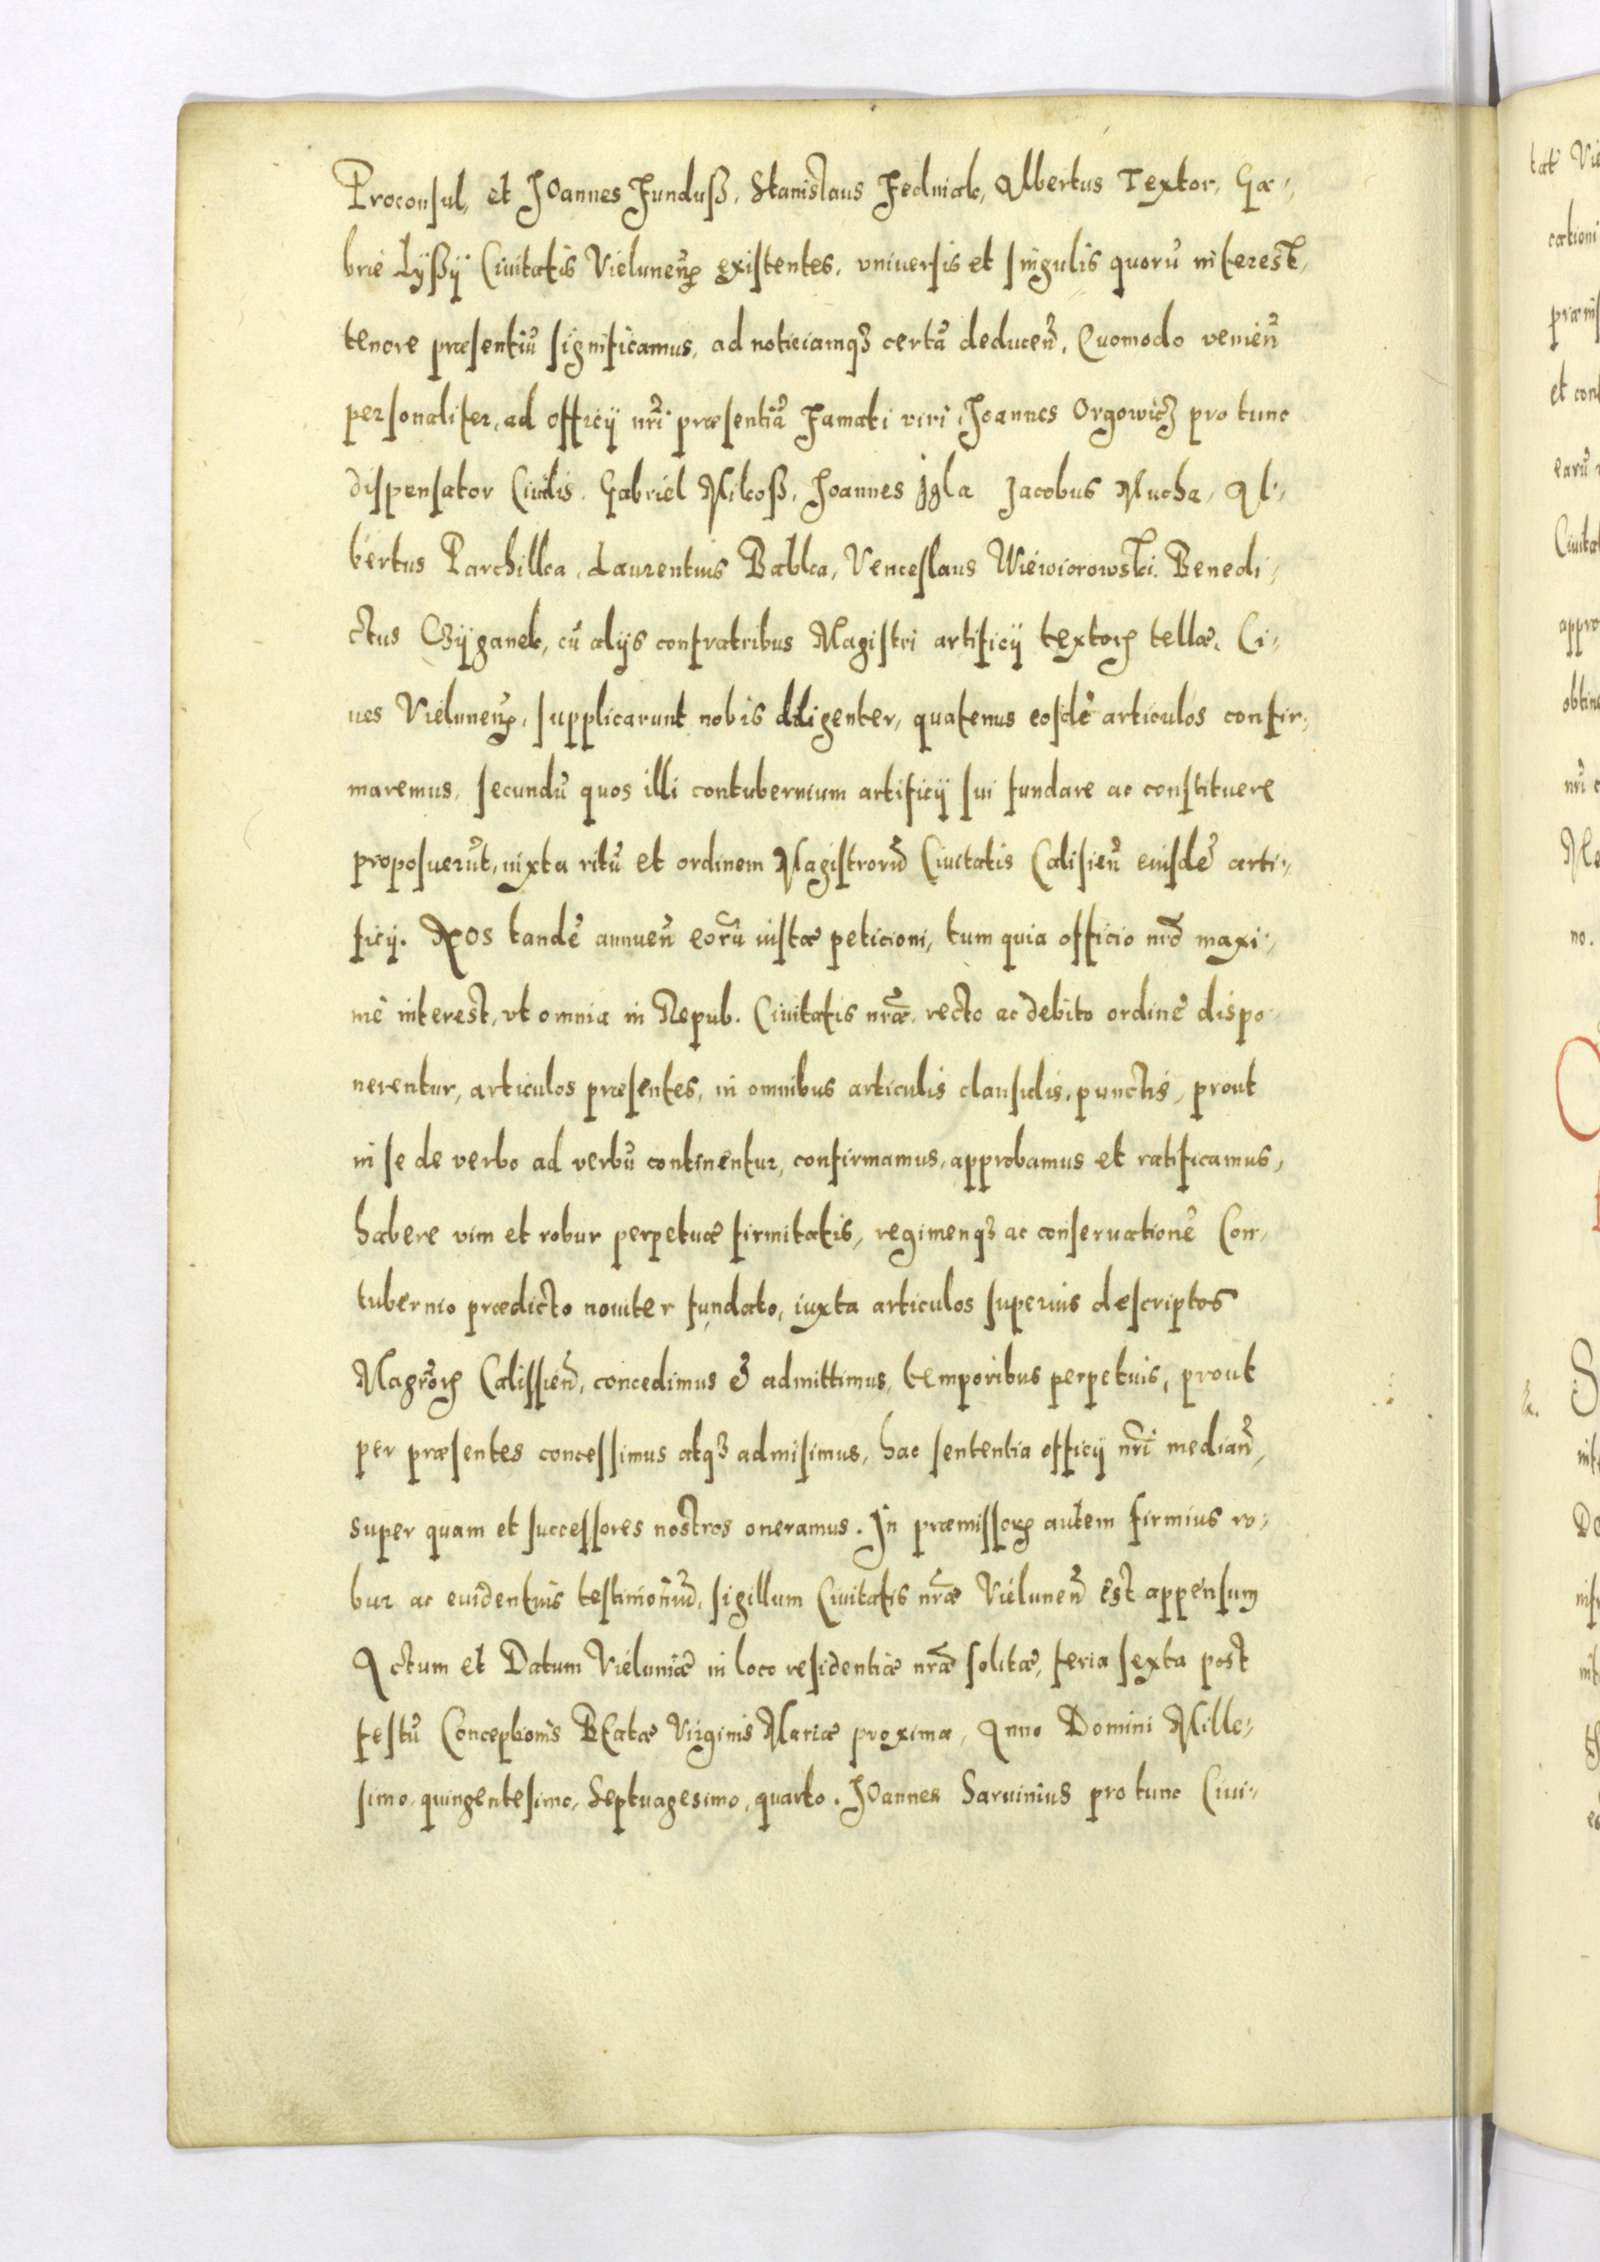 Proconsul, et JOannes Funduß, Stanislaus Fedniak, Albertus Textor, Ga-
briel Lyßÿ Ciuitatis Vielunen̄ existentes, vniuersis et singulis quorū interest,
tenore præsentiū significamus, ad noticiamqꝫ certā deducen̄, Quomodo venien̄
personaliter, ad officÿ nr̄i præsentiā Famati viri Joannes Orgowicz pro tunc
dispensator Ciuilis, Gabriel Mikoß, Joannes Jgla Jacobus Mucha, Al-
bertus Parchilka, Laurentius Babka, Venceslaus Wiewiorowski, Benedi-
ctus Czÿganek, cū alÿs confratribus Magistri artificÿ textoꝝ tellæ, Ci-
ues Vielunen̄, supplicarunt nobis diligenter, quatenus eosdē articulos confir-
maremus, secundū quos illi contubernium artificÿ sui fundare ac constituere
proposuerūt, iuxta ritū et ordinem Magistrorū Ciuitatis Calisien̄ eiusdē arti-
ficÿ. NOS tandē annuen̄ eorū iustæ peticioni, tum quia officio nr̄o maxi-
mè interest, vt omnia in Repub. Ciuitatis nr̄æ, recto ac debito ordine dispo-
nerentur, articulos præsentes, in omnibus articulis clausulis, punctis, prout
in se de verbo ad verbū continentur, confirmamus, approbamus et ratificamus,
habere vim et robur perpetuæ firmitatis, regimenqꝫ ac conseruationē Con-
tubernio prædicto nouiter fundato, iuxta articulos superius descriptos
Magr̄oꝝ Calissien̄, concedimus & admittimus, temporibus perpetuis, prout
per præsentes concessimus atqꝫ admisimus, hac sententia officÿ nr̄i median̄,
super quam et successores nostros oneramus. Jn præmissoꝝ autem firmius ro-
bur ac euidentius testimoniū, sigillum Ciuitatis nr̄æ Vielunen̄ est appensum
Actum et Datum Vieluniæ in loco residentiæ nr̄æ solitæ, feria sexta post
festū Conceptionis BEatæ Virginis Mariæ proxima, Anno Domini Mille-
simo, quingentesimo, Septuagesimo, quarto. JOannes Saruinius pro tunc Ciui-